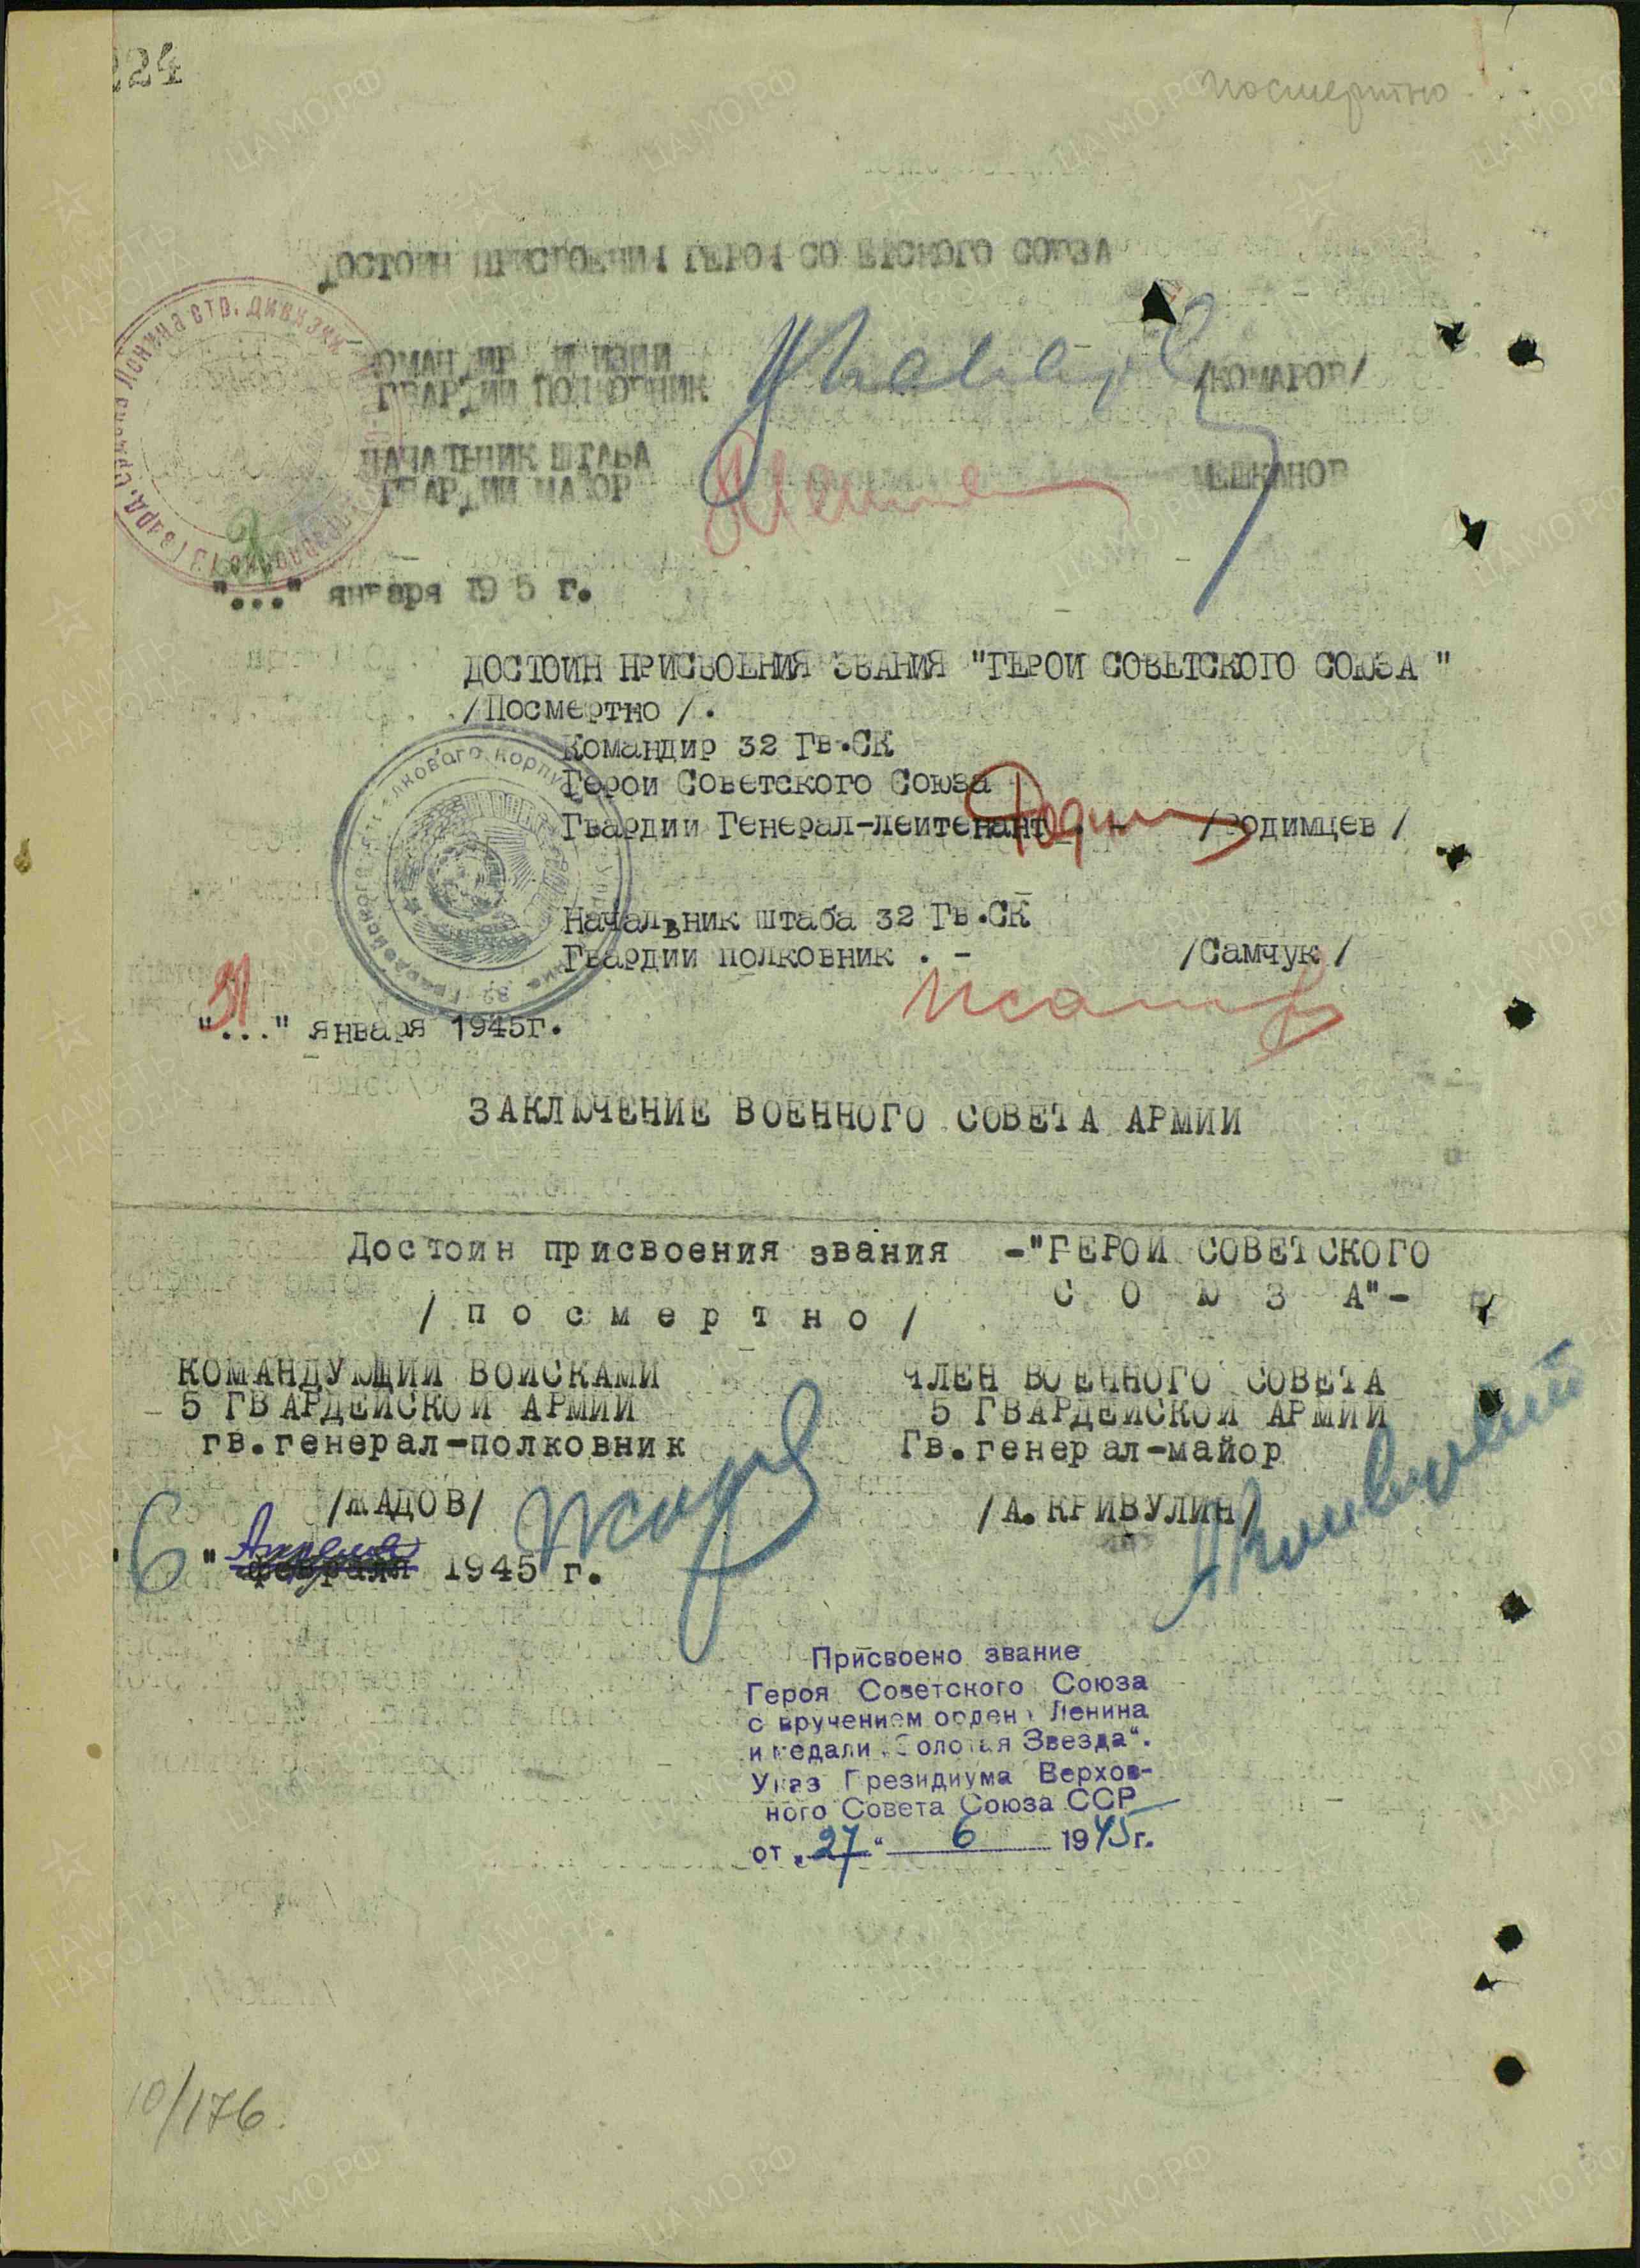 224
посмертно
ДОСТОИН ПРИСВОЕНИЯ ГЕРОЯ СО ЕТСКОГО СОЮЗА
ОМАН ИР И ИЗИИ
ГВАРДИИ ПОЛКОВНИК /КОМАРОВ/
НАЧАЛЬНИК ШТАБА
ГВАРДИИ МАЙОР МЕШКАНОВ
"..." января 19 5 г.
ДОСТОИН НРИСВОЕНИЯ ЗВАНИЯ "ГЕРОИ СОВЕТСКОГО СОЮЗА "
/Посмертно /.
Командир 32 Гв.СК
Герои Советского Союза
Гвардии Генерал-леитенант . - /Родимцев /
Начальник штаба 32 Гв.СК
Гвардии полковник . - /Самчук /
31
"..." января 1945г.
ЗАКЛЮЧЕНИЕ ВОЕННОГО СОВЕТА АРМИИ
Достоин присвоения звания -"ГЕРОИ СОВЕТСКОГО
С О Ю З А"-
/ п о с м е р т н о /
КОМАНДУЮЩИЙ ВОЙСКАМИ ЧЛЕН ВОЕННОГО СОВЕТА
5 ГВАРДЕЙСКОЙ АРМИИ 5 ГВАРДЕЙСКОЙ АРМИИ
гв.генерал-полковник Гв.генерал-майор
/ЖАДОВ/ /А. КРИВУЛИН/
"6" Апреля февраля 1945 г.
Присвоено звание
Героя Советского Союза
с вручением орден Ленина
и медали „Золотая Звезда“.
Указ Президиума Верхов-
ного Совета Союза ССР
от „27“ 6 1945г.
10/176.
ПАМЯТЬ НАРОДА
ЦАМО.РФ